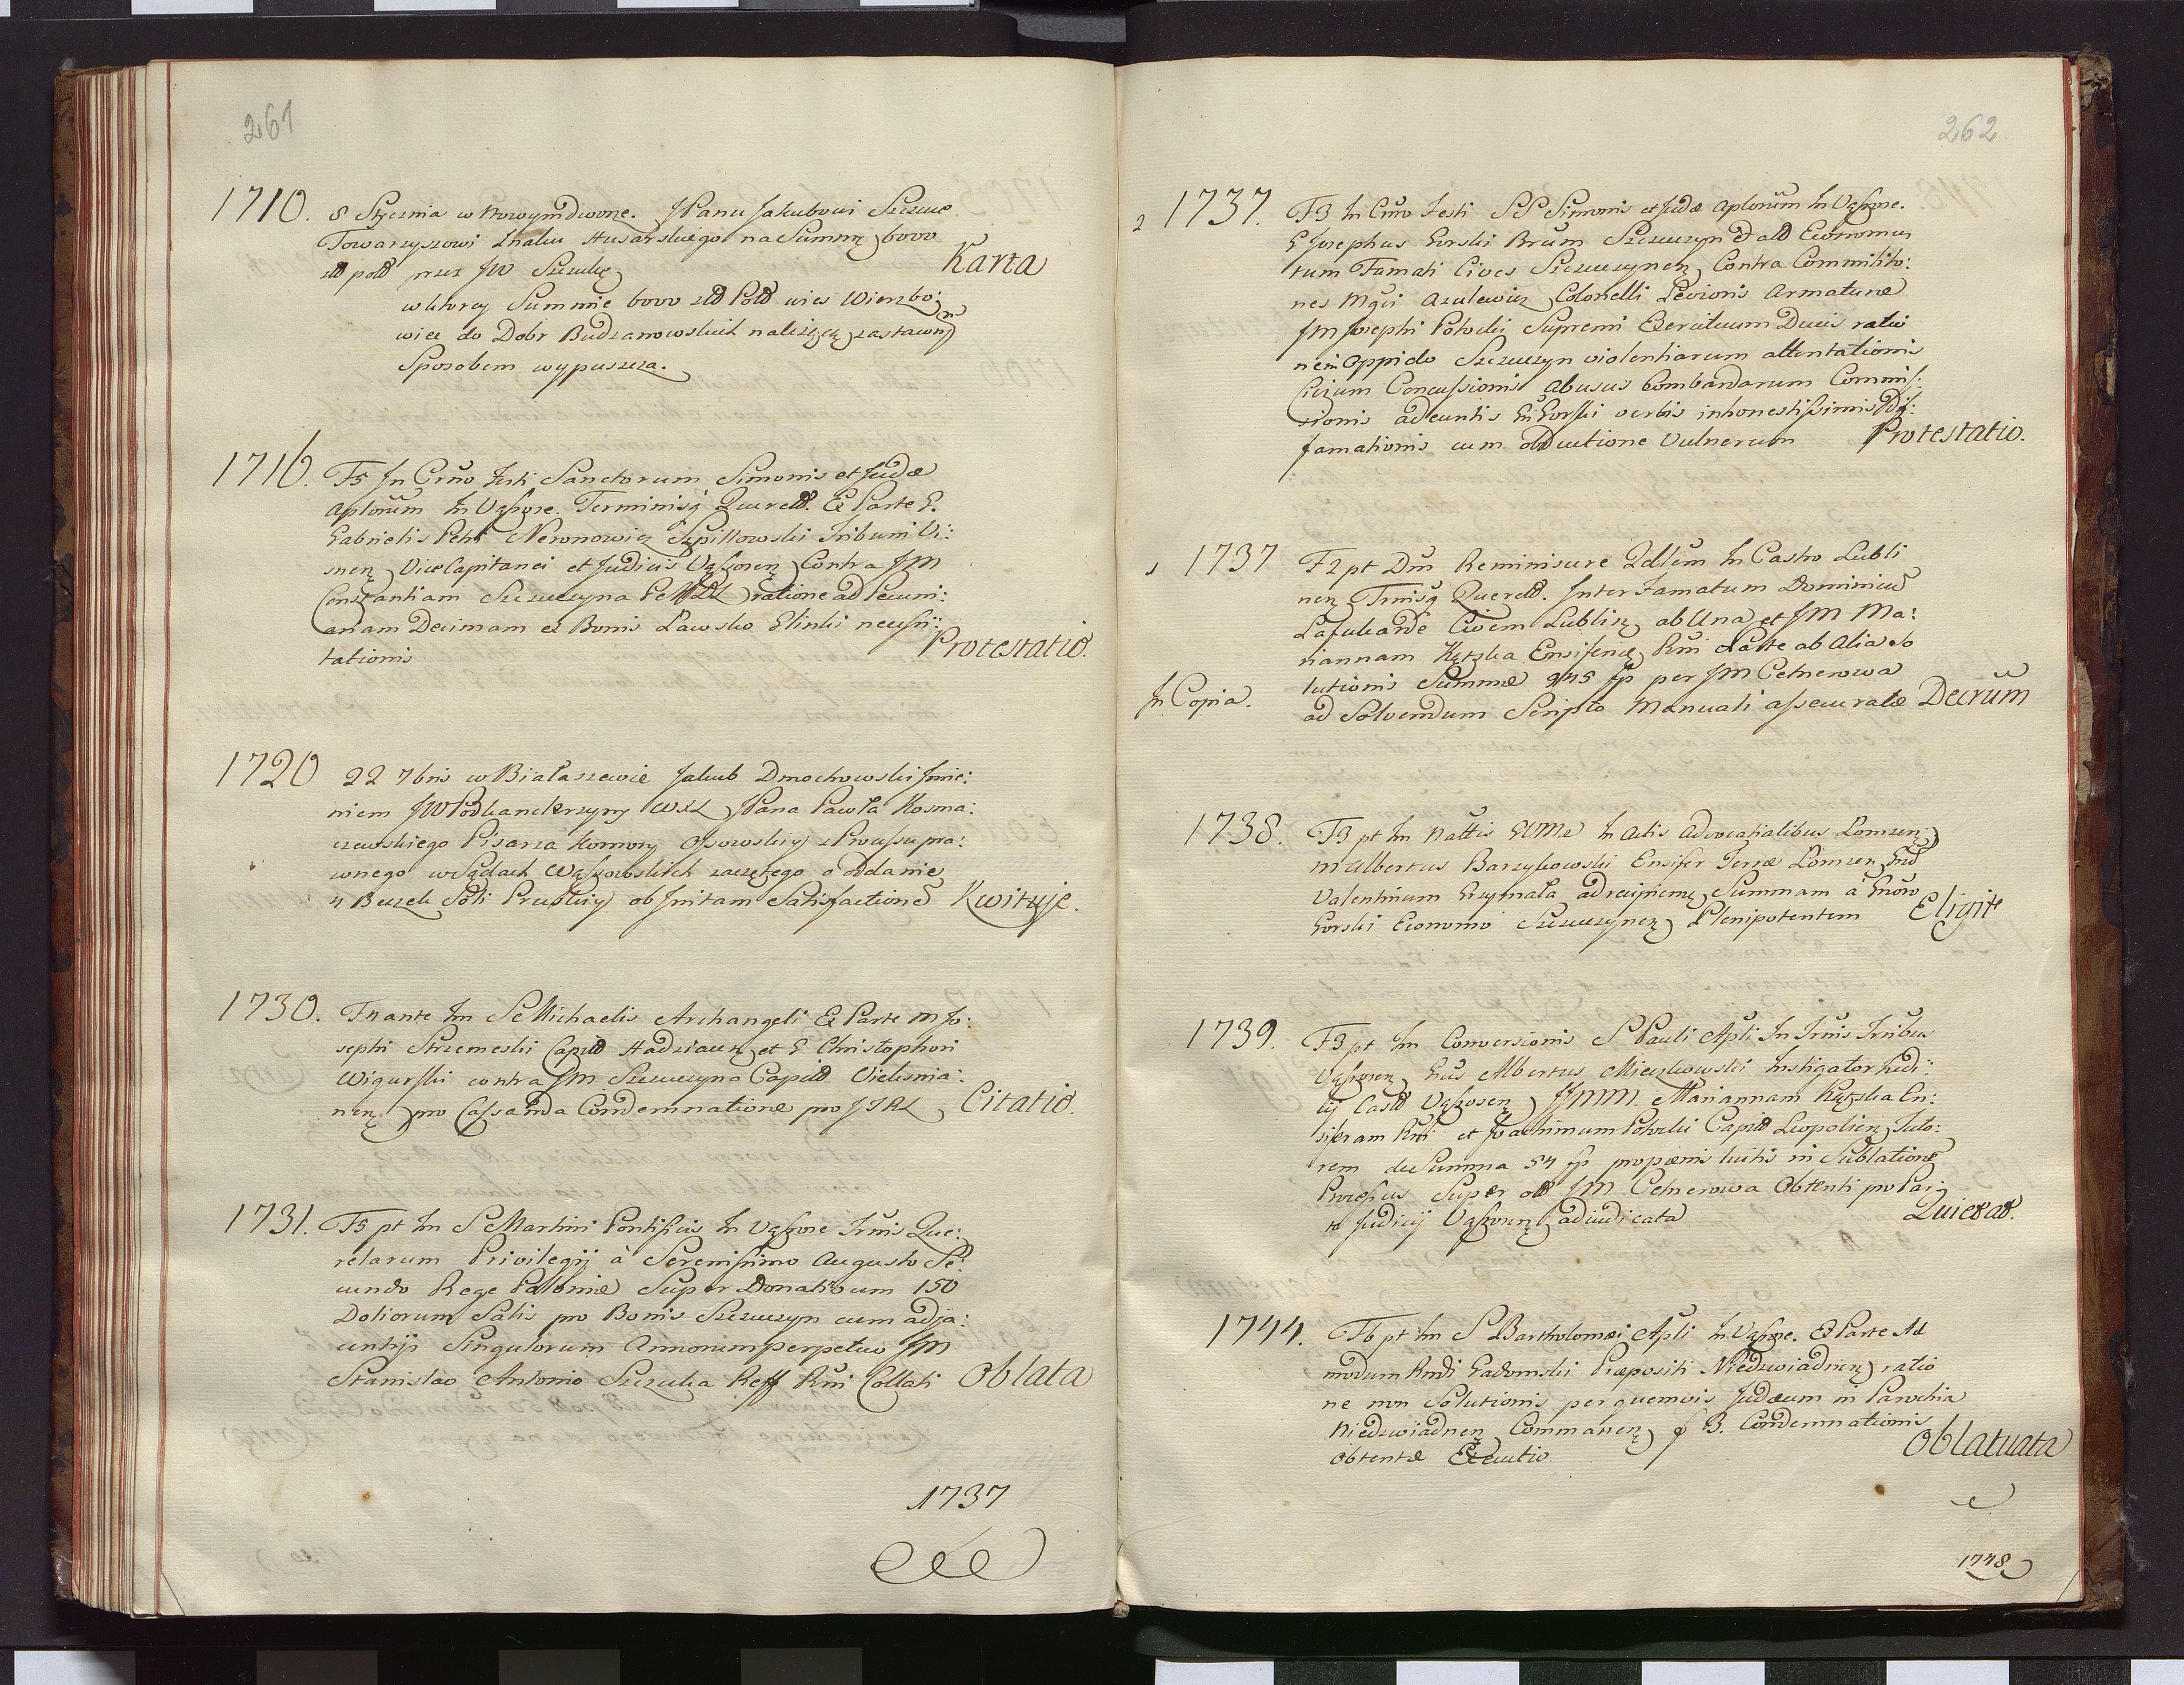 261
1710. 8 Stycznia w Nowymdworze. JPanu Jakubowi Szczuce
Towarzyszowi Znaku Husarskiego na Summę 6000
złł poll przez JW Szczukę Karta
w ktorey Summie 6000 złł Poll wies Wierzbo:
wice do Dobr Budzanowskich należącą zastawnȳ
Sposobem wypuszcza.
1716. F5 In Crño Festi Sanctorum Simonis et Judæ
Aplorum In Vąsosze. Terminisq Querell. Ex Parte G.
Gabrielis Petri Szpillowski Tribuni Vi:
snen. ViceCapitanei et Judicis Vąsosen. Contra JM
Constantiam Szczuczyna ratione ad Pecuni:
ariam Decimam ex Bonis Ławsko Glinki
tationis Protestatio.
1720 22 7bris w Białaszewie Jakub Dmochowski Imie:
niem JWPodkanclerzyny WXL JPana Pawła Kosma:
czewskiego Pisarza Komory Osowskiey z Processu pra:
wnego w Sądach Wąsoskich zaczętego o oddanie
4 Beczek Soli Pruskiey ob Initam Satisfactione Kwituje.
1730. F4 ante Fm S Michaelis Archangeli Ex Parte M Jo:
sephi Strzemeski Capitt Hadziacen. et G Christophori
Wigurski contra JM Szczuczyna Capitt Vielisnia:
nen. pro Cassanda Condemnatione pro JTRL Citatio.
1731. F5 pt Fm S Martini Pontificis In Vąsosze Trmis Que:
relarum Privilegij à Serenissimo Augusto Se:
cundo Rege Poloniæ Super Donativum 150
Doliorum Salis pro Bonis Szczuczyn cum adja:
centijs Singulorum Annorum perpetuo JM
Stanislao Antonio Szczuka Reff Rni Collati Oblata
1737
262
2 1737. F3 In Crño Festi SS Simonis et Judæ Aplorum In Vąsosze.
G Josephus Gorski Brum Szczuczyn & all Economus
tum Famati Cives Szczuczynen. Contra Commilito:
nes Mgci Azulewicz Colonelli Levioris Armaturæ
JM Josephi Potocki Supremi Exercituum Ducis ratio
ne in Oppido Szczuczyn violentiarum attentationis
Civium Concussionis Abusus bombardarum Commis:
sionis adeuntis Gñi Gorski verbis inhonestissimis Dif:
famationis cum obductione Vulnerum Protestatio.
1 1737 F2 pt Dm Reminiscere In Castro Lubli
nen. Trmisq Querell. Inter Famatum Dominicu
Lafukarde Civem Lublin. ab Una et JM Ma:
riannam Kątska Ensiferæ Rni Parte ab Alia So
lutionis Summæ 945 fp per JM Cetnerowa
In Copia. ad Solvendum Scripto Manuali assecuratæ Decrūm
1738. F3 pt Fm Nattis BVMæ In Actis Advocatialibus Lomzen.
M Albertus Barzykowski Ensifer Terræ Lomzen. Gnu
Valentinum Grzymała ad recipienu Summam à Gnoro
Gorski Economo Szczuczynen. Plenipotentem Eligit
1739. F3 pt Fm Conversionis S Pauli Apli In Trmis Tribus
Vąsosen. Gnus Albertus Mieczkowski Instigator Judi:
cij Castr Vąsosen. JJMM. Mariannam Kątska En:
siferam Rni et Joachimum Potocki Capitt Leopolien. Tuto:
rem de Summa 54 fp pro pænis luitis in Sublatione
Processus Super oll JM Cetnerowa Obtenti pro Par:
te Judicij Vąsosen. adiudicata Quietat.
1744. F6 pt Fm S Bartholomæi Apli In Vąsosze. Ex Parte Ad
modum Rndi Gadomski Præpositi Niedzwiadnen. ratio
ne non Solutionis per quemvis Judæum in Parochia
Niedzwiadnen. Commanen. f 3. Condemnationis
obtentæ Executio Oblatuata
1748